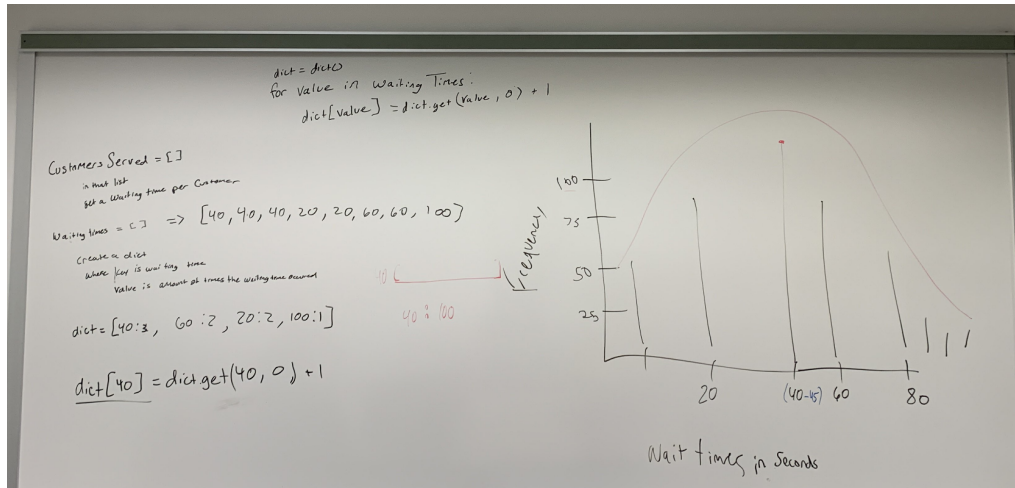 dict = dict()
for value in Waiting Times:
dict[value] = dict.get(value, 0) + 1
Customers Served = []
in that list
get a waiting time per Customer
Waiting times = [] => [40, 40, 40, 20, 20, 60, 60, 100]
Create a dict
where key is waiting time
Value is amount of times the waiting time occurred
dict = [40:3, 60:2, 20:2, 100:1]
dict[40] = dict.get(40, 0) + 1
40 : 100
Frequency
100
75
50
25
20
(40-45)
60
80
Wait times in Seconds